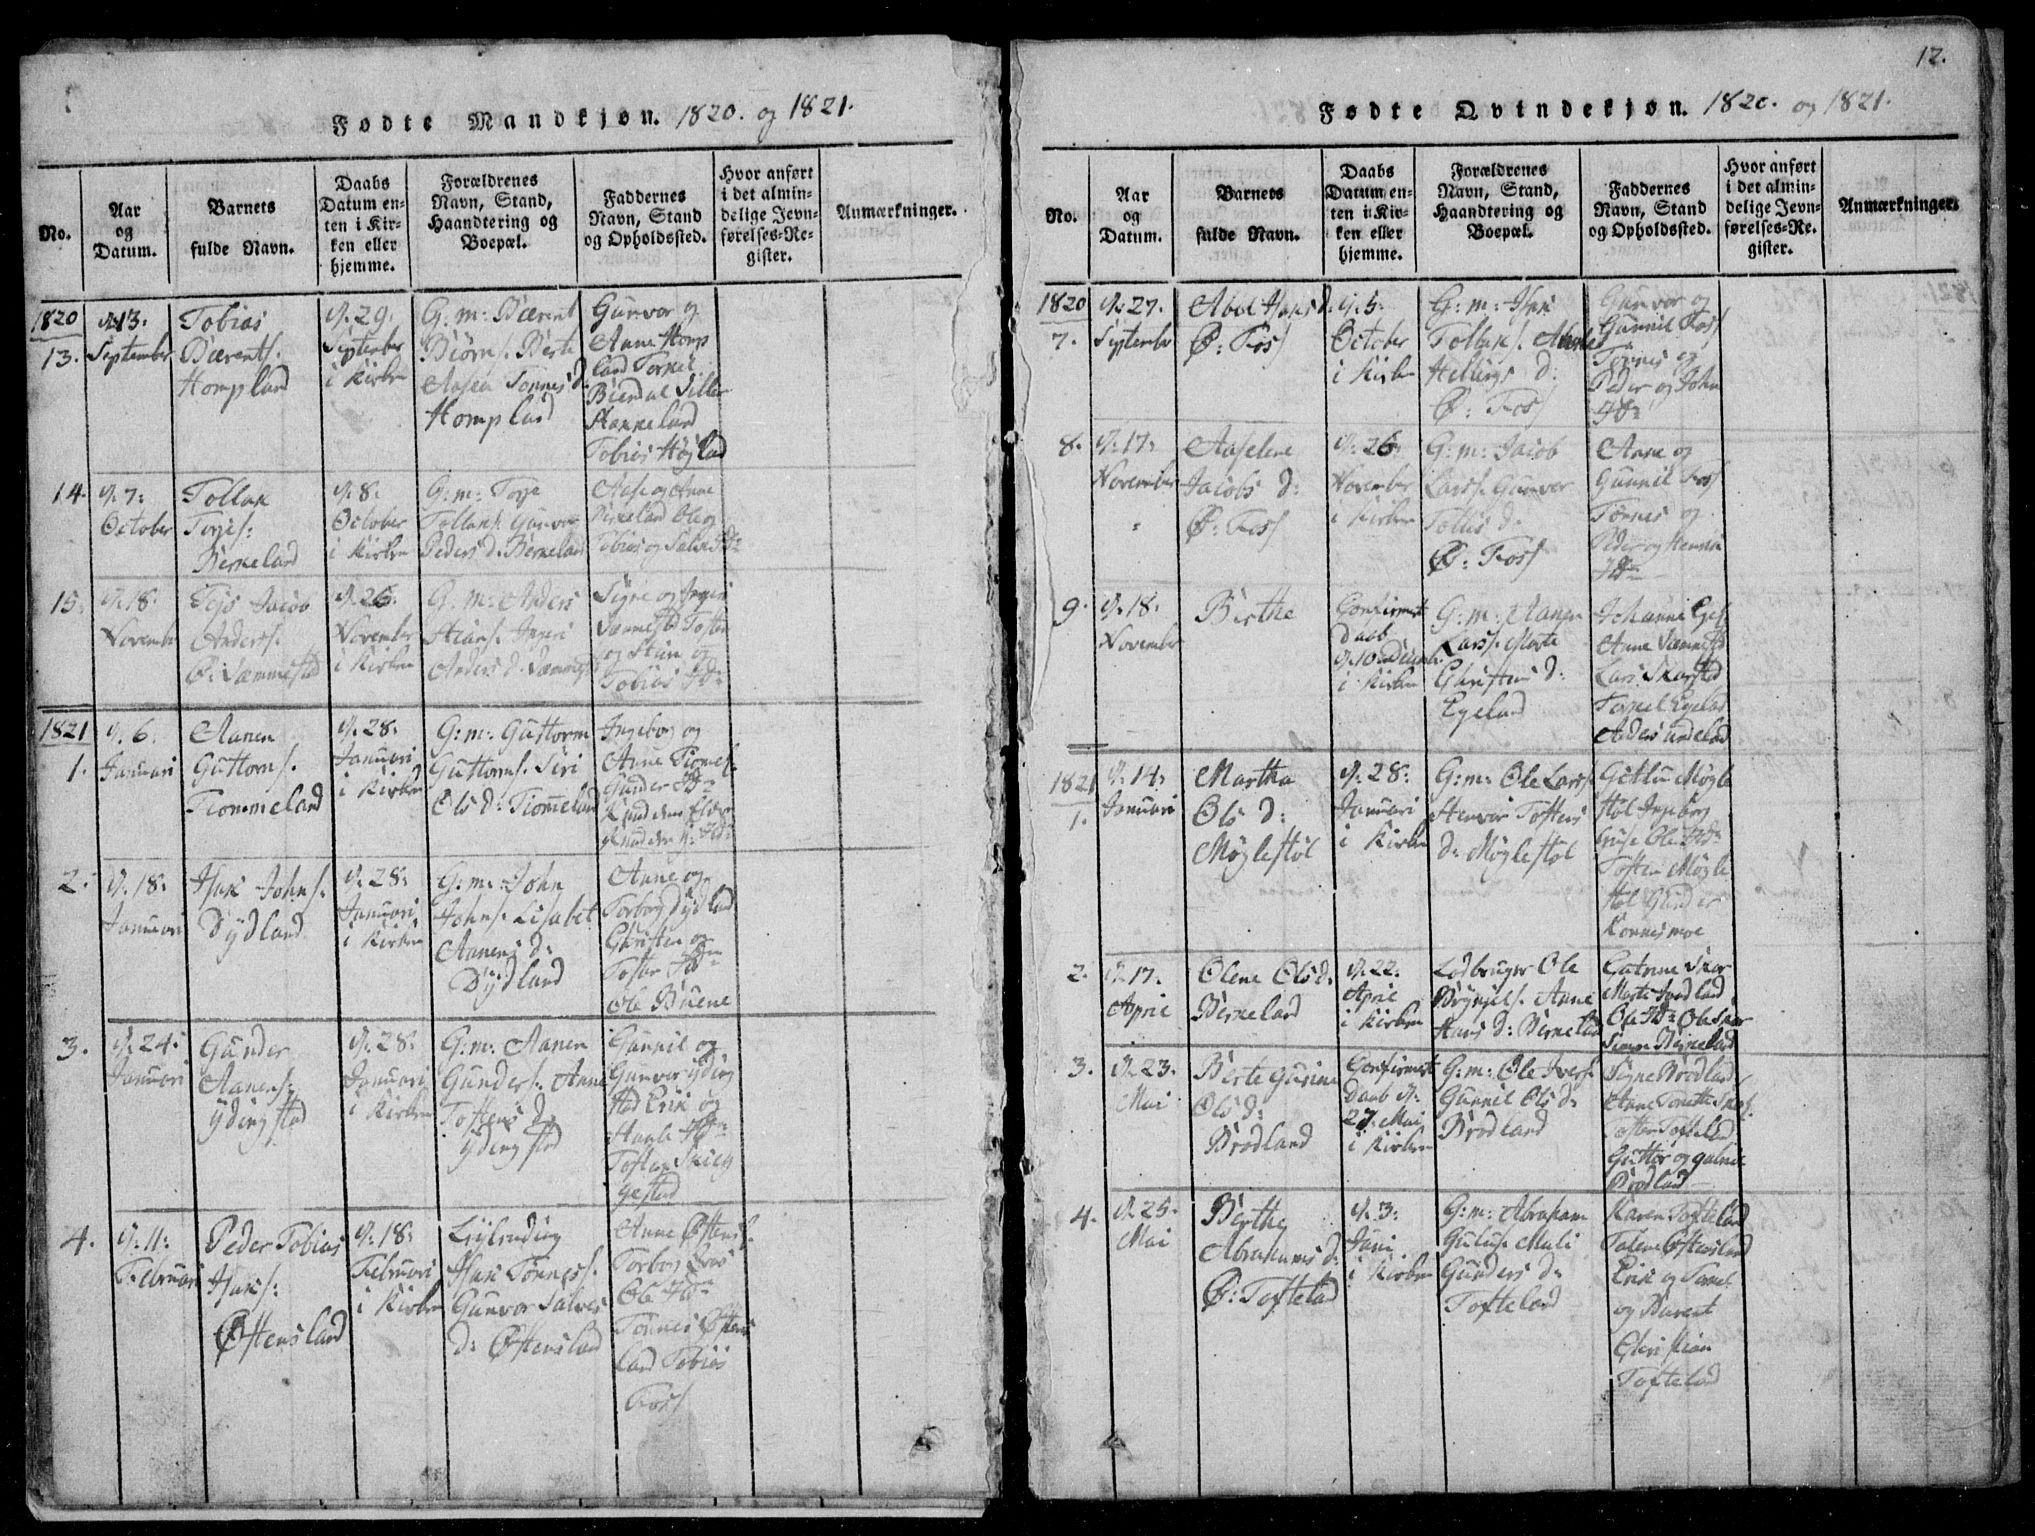 Fødte Mandkjøn. 1820. og 1821.
No.
Aar
og
Datum.
Barnets
fulde Navn.
Daabs
Datum en-
ten i Kir-
ken eller
hjemme.
Forældrenes
Navn, Stand,
Haandtering og
Boepæl.
Faddernes
Navn, Stand
og Opholdssted.
Hvor anført
i det almin-
delige Jevn-
førelses-Re-
gister.
Anmærkninger.
1820
13.
d. 13:
September
Tobias
Bærents.
Hompland
d. 29.
September
i Kirken
G: m: Bærent
Biørns. Berte
Aasea Tønnes d.
Hompland
Gunvor og
Anne Homp
land Torkil
Hanneland
Tobias Høyland
14.
d. 7:
October
Tollak
Torjes:
Berkeland
d. 8:
October
i Kirken
G: m: Torje
Tollaks. Gunvor
Peders d. Berkeland
Aase og Anne
Birkeland Ole og
Tobias og Salve Jbd.
15.
d. 18.
November
Tejs Jacob
Anders.
Ø: Væmmestad
d. 26.
November
i Kirken
G: m: Anders
Steans. Ingeri
Anders d. Væmmest
Signe og Ingeri
Væmmestad Tosten
og Stean og
Tobias Jbd.
1821
1.
d. 6.
Januari
Aanen
Guttorms.
Tiommeland
d. 28:
Januari
i Kirken
G: m: Guttorm
Guttorms. Siri
Ols d: Tiomeland
Ingebor og
Anne Tiomel.
Gunder Jbd.
Knud den Eldre
Knud den y. Jbd.
2.
d. 18:
Januari
Isak Johns.
Dydland
d. 28.
Januari
i Kirken
G: m: John
Johns. Lisabet
Aanens d:
Dydland
Anne og
Torbor Dydland
Christen og
Tosten Jbd.
Ole Buene
3.
d. 24:
Januari
Gunder
Aanens:
Ydingstad
d. 28:
Januari
i Kirken
G: m: Aanen
Gunders. Anne
Tostens d:
Ydingstad
Gunnil og
Gunvor Yding
stad Erik og
Jbd.
Tosten Skieg
gestad
4.
d. 11:
Februari
Peder Tobias
Isaks:
Østensland
d. 18:
Februari
i Kirken
Leilending
Isak Tønnes.
Gunvor Salves
d: Østensland
Anne Østensl.
Torbor
Ole Jbd.
Tønnes Østens
land Tobias
Foss
12.
Fødte Qvindekjøn. 1820. og 1821.
No.
Aar
og
Datum.
Barnets
fulde Navn.
Daabs
Datum en-
ten i Kir-
ken eller
hjemme.
Forældrenes
Navn, Stand,
Haandtering og
Boepæl.
Faddernes
Navn, Stand
og Opholdssted.
Hvor anført
i det almin-
delige Jevn-
førelses-Re-
gister.
Anmærkninger.
1820
7.
d. 27.
September
Abel Isaks d.
Ø: Foss
d. 5:
October
i Kirken
G: m: Isak
Tollaks.
Hellings d:
Ø: Foss
Gunvor og
Gunnil Foss
Tønnes og
Peder og John
Jbd.
8.
d. 17:
November
Aaselene
Jacobs d:
Ø: Foss
d. 26.
November
i Kirken
G: m: Jacob
Larss. Gunvor
Tollis d.
Ø: Foss
Anne og
Gunnil Foss
Tønnes og
Peder og Henrik
Jbd.
9.
d. 18.
November
Birthe
Confirmert
daab
d. 10 decemb.
i Kirken
G: m: Aanen
Larss. Marte
Christens d:
Egeland
Johanne Egel.
Anne Væmmestad
Lars Skarstad
Torkel Egeland
Anders Undeland
1821
1.
d. 14:
Januari
Martha
Ols d:
Møglestøl
d. 28:
Januari
i Kirken
G: m: Ole Larss.
Henvor Tostens
d: Møglestøl
Gitlu Møgle
støl Ingeborg
Ole Jbd.
Tosten Møgle
støl Gunder
Kornesmoe
2.
d. 17.
April
Olene Ols d.
Berkeland
d. 22:
April
i Kirken
Lodbruger Ole
Brynjels. Anne
Hans d: Berkeland
Catrine Skar
Marte
Ole Jbd. Ole Skar
Simon Birkeland
3.
d. 23.
Mai
Berte Gurine
Ols d:
Brødland
Confirmert
daab d.
27. Mai
i Kirken
G: m: Ole Ivers.
Gunnil Ols d:
Brødland
Signe Brødland
Anne Tonette
Tosten Tofteland
Guttor og
Brødland
4.
d. 25.
Mai
Berthe
Abrahams d:
Ø: Tofteland
d. 3:
Juni
i Kirken
G: m: Abraham
Guluf. Mali
Gunders d:
Tofteland
Karen Tofteland
Talene Østensland
Erik og Tarael
og Bærent
Christian
Tofteland